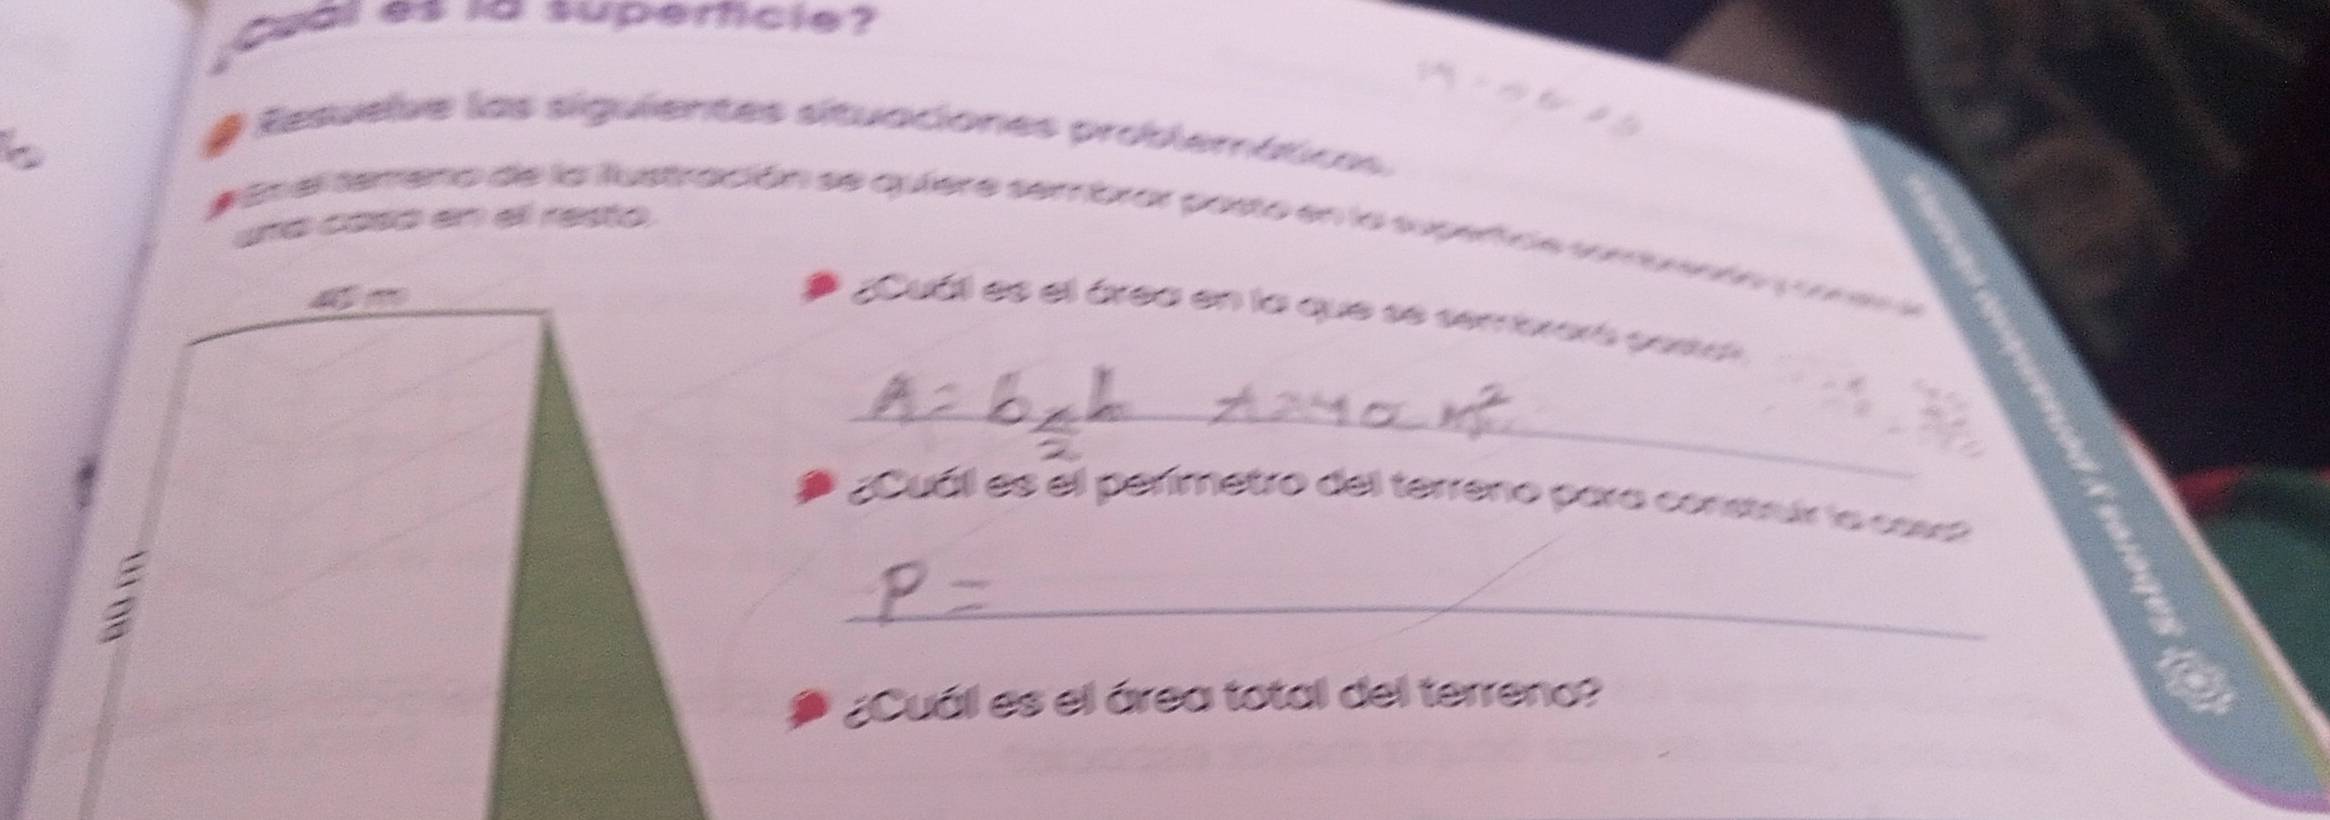 ¿Cuál es la superficie?
Resuelve las siguientes situaciones problemáticas.
En el terreno de la ilustración se quiere sembrar pasto en la superficie sombreada y construir
una casa en el resto.
45 m
¿Cuál es el área en la que se sembrará pasto?
A = b x h
2
¿Cuál es el perímetro del terreno para construir la casa?
P =
80 m
¿Cuál es el área total del terreno?
Saberes y pensamiento científico